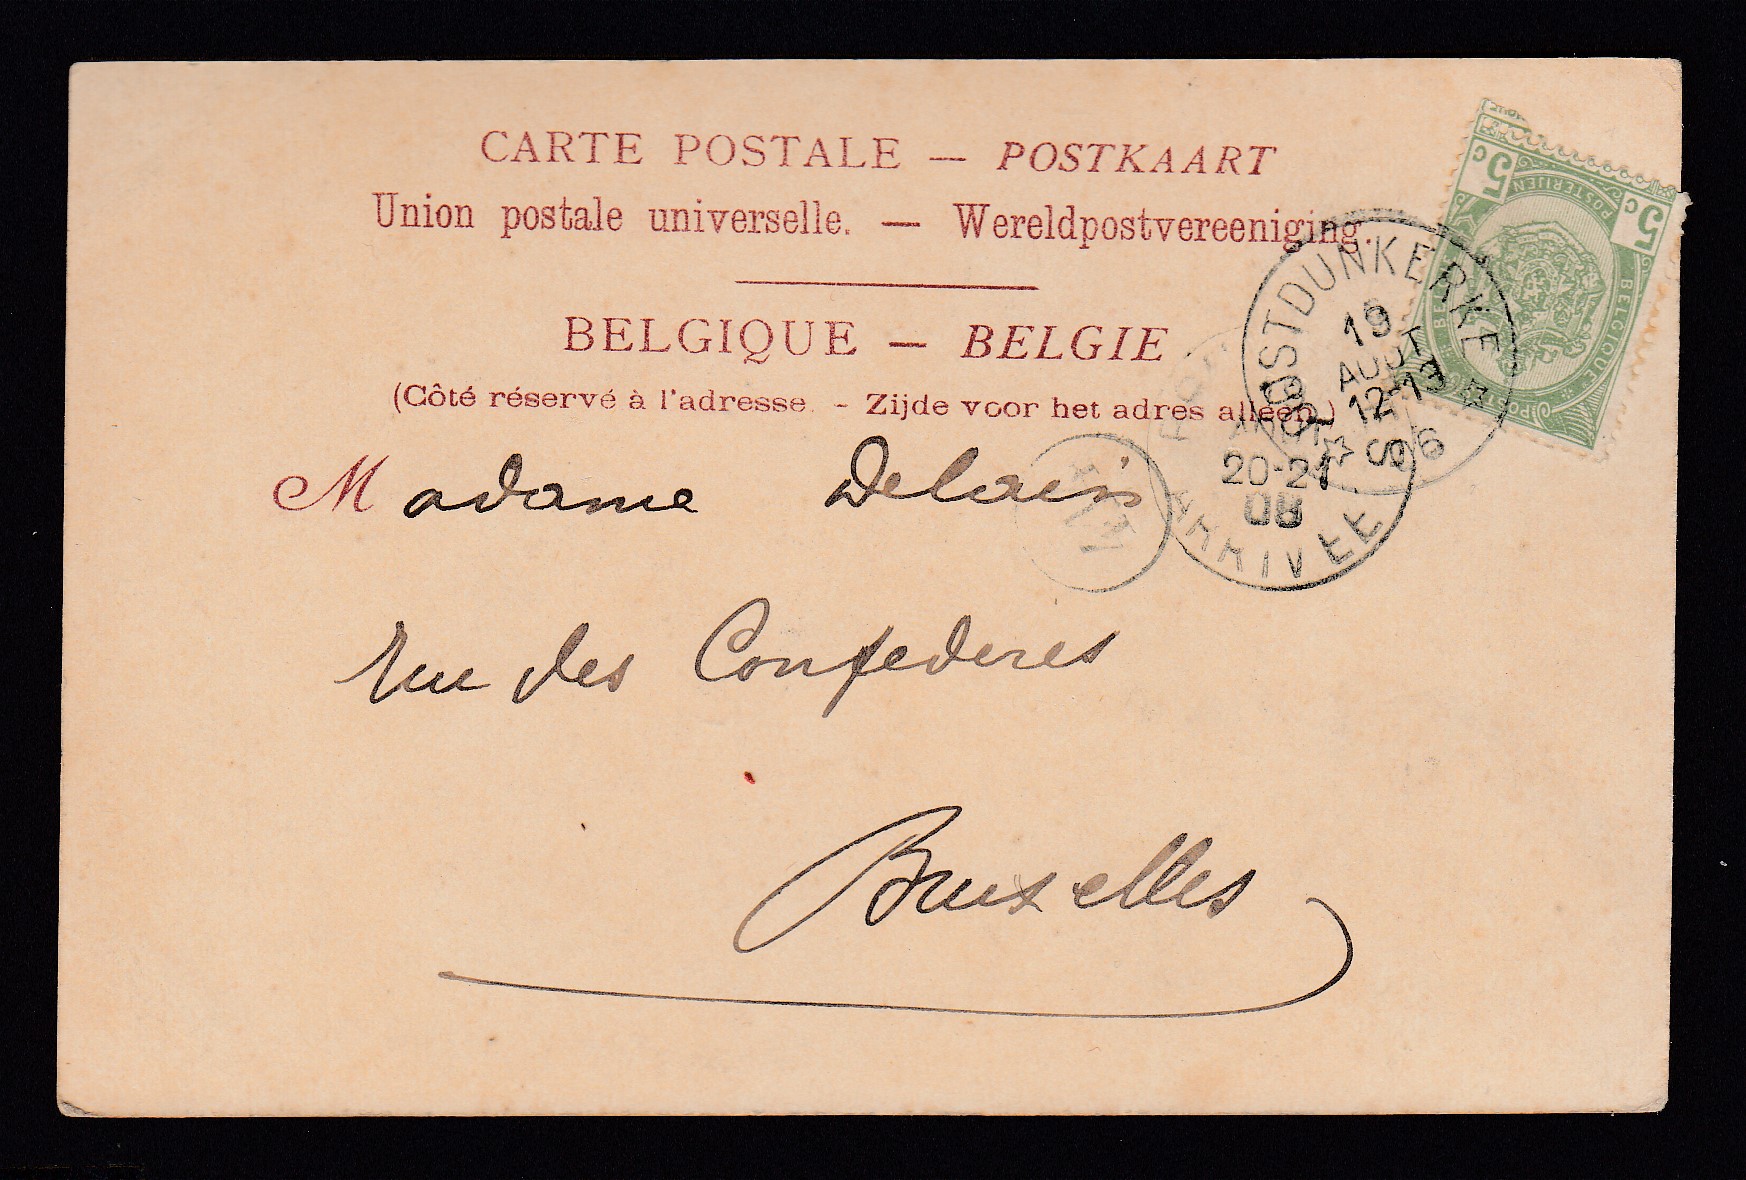 CARTE POSTALE — POSTKAART
Union postale universelle. — Wereldpostvereeniging.
BELGIQUE — BELGIE
(Côté réservé à l'adresse. - Zijde voor het adres alleen.)
Madame Delain
rue des Confederes
Bruxelles
5c 5c
POSTERIJEN
BELGIQUE
OOSTDUNKERKE
19
AOUT
12-13
AOUT
20-21
08
ARRIVEE